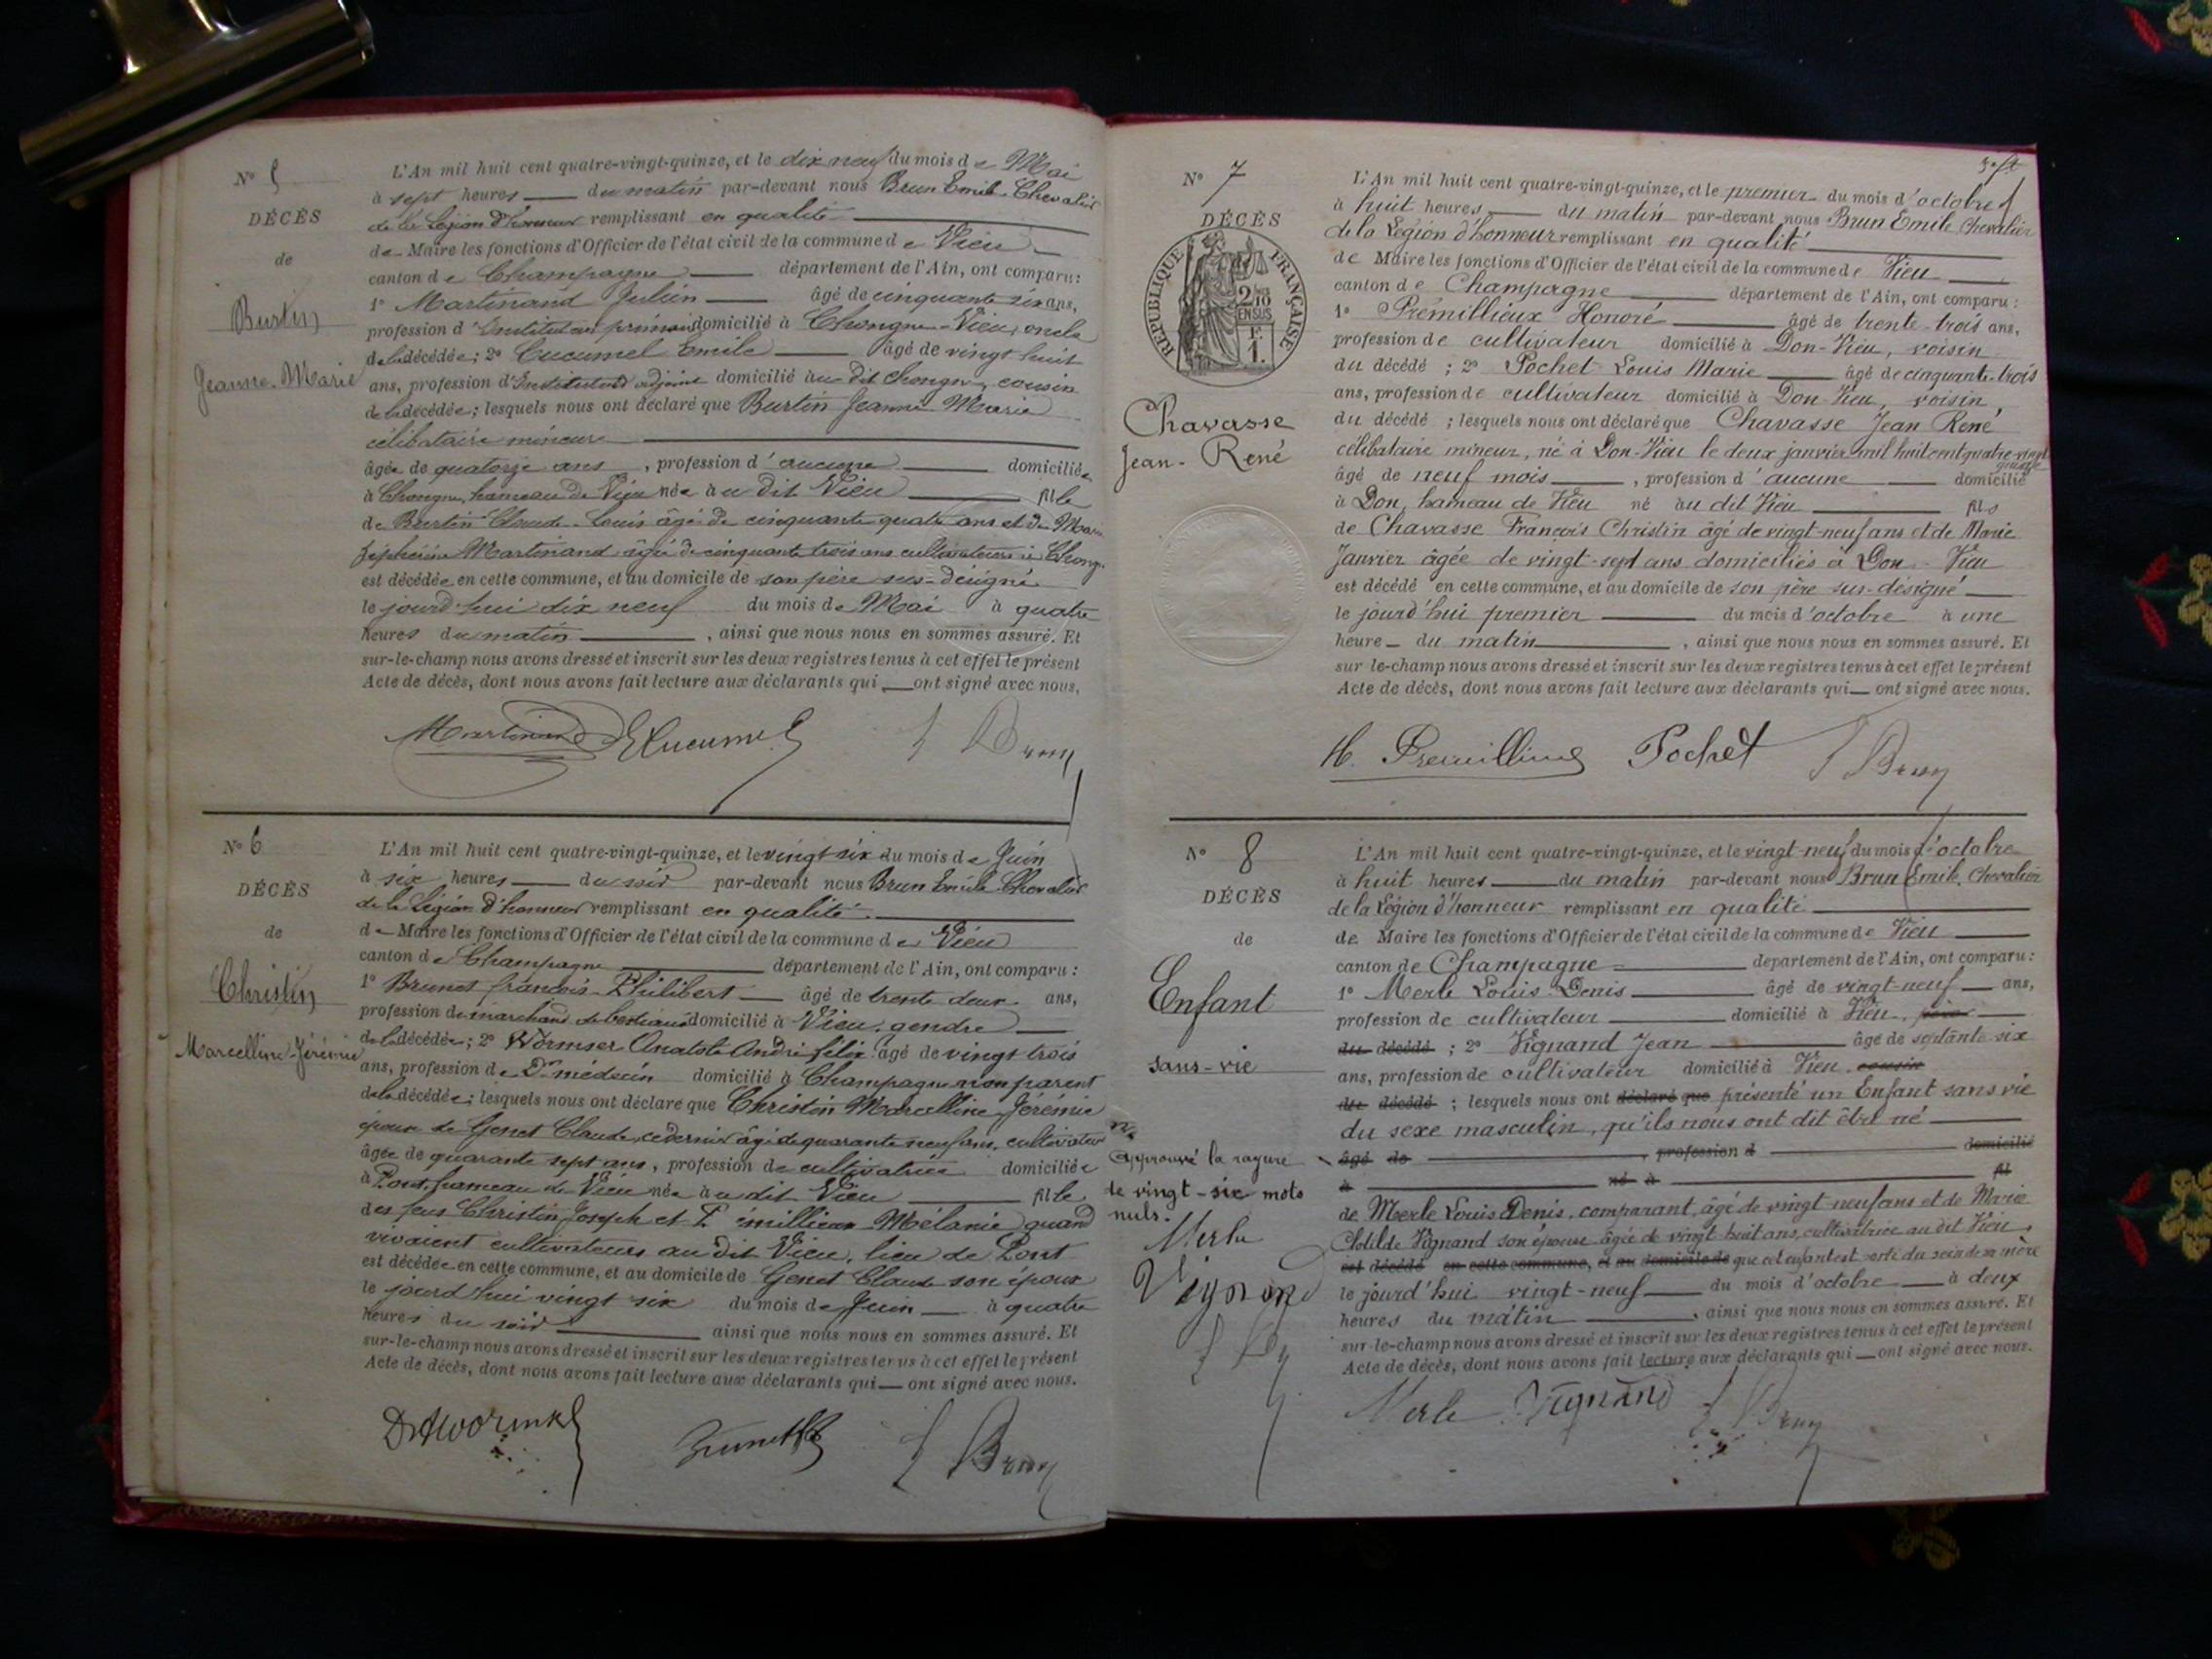 N° 5
DÉCÈS
de
Burtin
Jeanne-Marie
L'An mil huit cent quatre-vingt-quinze, et le dix neuf du mois de Mai
à sept heures du matin par-devant nous Brun Emile Chevalier
de la Légion d'honneur remplissant en qualité
de Maire les fonctions d'Officier de l'état civil de la commune de Vieu
canton de Champagne département de l'Ain, ont comparu:
1° Martinand Julien âgé de cinquante six ans,
profession d'Instituteur primaire domicilié à Chongne-Vieu, oncle
de la décédée; 2° Cucumel Emile âgé de vingt huit
ans, profession d'Instituteur adjoint domicilié au dit Chongne, cousin
de la décédée; lesquels nous ont déclaré que Burtin Jeanne Marie
célibataire mineure
âgée de quatorze ans, profession d'aucune domiciliée
à Chongne, hameau de Vieu née au dit Vieu fille
de Burtin Claude-Louis âgé de cinquante quatre ans et de Marie
Josphine Martinand âgée de cinquante trois ans cultivateurs à Chong.
est décédée en cette commune, et au domicile de son père sus-désigné
le jourd'hui dix neuf du mois de Mai à quatre
heures du matin, ainsi que nous nous en sommes assuré. Et
sur-le-champ nous avons dressé et inscrit sur les deux registres tenus à cet effet le présent
Acte de décès, dont nous avons fait lecture aux déclarants qui ont signé avec nous.
Martinand E Cucumel E Brun
N° 6
DÉCÈS
de
Christin
Marcelline-Jérémie
L'An mil huit cent quatre-vingt-quinze, et le vingt six du mois de Juin
à six heures du soir par-devant nous Brun Emile Chevalier
de la Légion d'honneur remplissant en qualité
de Maire les fonctions d'Officier de l'état civil de la commune de Vieu
canton de Champagne département de l'Ain, ont comparu:
1° Brunet françois-Philibert âgé de trente deux ans,
profession de marchand de bestiaux domicilié à Vieu, gendre
de la décédée; 2° Wormser Anatole André félix âgé de vingt trois
ans, profession de Dr médecin domicilié à Champagne non parent
de la décédée; lesquels nous ont déclaré que Christin Marcelline Jérémie
épouse de Genet Claude, ce dernier âgé de quarante neuf ans, cultivateur
âgée de quarante sept ans, profession de cultivatrice domiciliée
à Pont, hameau de Vieu née au dit Vieu fille
des feus Christin Joseph et P émillieux Mélanie quand
vivaient cultivateurs au dit Vieu, lieu de Pont
est décédée en cette commune, et au domicile de Genet Claude son époux
le jourd'hui vingt six du mois de Juin à quatre
heures du soir ainsi que nous nous en sommes assuré. Et
sur-le-champ nous avons dressé et inscrit sur les deux registres tenus à cet effet le présent
Acte de décès, dont nous avons fait lecture aux déclarants qui ont signé avec nous.
Brunet E Brun
N° 7
DÉCÈS
RÉPUBLIQUE FRANÇAISE
2/10 EN SUS
1 F.
Chavasse
Jean-René
L'An mil huit cent quatre-vingt-quinze, et le premier du mois d'octobre
à huit heures du matin par-devant nous Brun Emile Chevalier
de la Légion d'honneur remplissant en qualité
de Maire les fonctions d'Officier de l'état civil de la commune de Vieu
canton de Champagne département de l'Ain, ont comparu:
1° Prémillieux Honoré âgé de trente-trois ans,
profession de cultivateur domicilié à Don-Vieu, voisin
du décédé; 2° Pochet Louis Marie âgé de cinquante-trois
ans, profession de cultivateur domicilié à Don-Vieu, voisin,
du décédé; lesquels nous ont déclaré que Chavasse Jean René
célibataire mineur, né à Don-Vieu le deux janvier mil huit cent quatre-vingt quinze
âgé de neuf mois, profession d'aucune domicilié
à Don, hameau de Vieu né au dit Vieu fils
de Chavasse François Christin âgé de vingt-neuf ans et de Marie
Janvier âgée de vingt-sept ans domiciliés à Don-Vieu
est décédé en cette commune, et au domicile de son père sus-désigné
le jourd'hui premier du mois d'octobre à une
heure du matin, ainsi que nous nous en sommes assuré. Et
sur-le-champ nous avons dressé et inscrit sur les deux registres tenus à cet effet le présent
Acte de décès, dont nous avons fait lecture aux déclarants qui ont signé avec nous.
H. Premillieux Pochet E Brun
N° 8
DÉCÈS
de
Enfant
sans-vie
Approuvé la rayure
de vingt-six mots
nuls.
Merle
Vignand
L'An mil huit cent quatre-vingt-quinze, et le vingt-neuf du mois d'octobre
à huit heures du matin par-devant nous Brun Emile, Chevalier
de la Légion d'honneur remplissant en qualité
de Maire les fonctions d'Officier de l'état civil de la commune de Vieu
canton de Champagne département de l'Ain, ont comparu:
1° Merle Louis-Denis âgé de vingt-neuf ans,
profession de cultivateur domicilié à Vieu, père
du décédé; 2° Vignand Jean âgé de septante-six
ans, profession de cultivateur domicilié à Vieu, cousin
du décédé; lesquels nous ont déclaré que présenté un Enfant sans vie
du sexe masculin, qu'ils nous ont dit être né
âgé de, profession d domicilié
à né à fil
de Merle Louis Denis, comparant, âgé de vingt-neuf ans et de Marie
Clotilde Vignand son épouse âgée de vingt huit ans, cultivatrice au dit Vieu,
est décédé en cette commune, et au domicile de que cet enfant est sorti du sein de sa mère
le jourd'hui vingt-neuf du mois d'octobre à deux
heures du matin, ainsi que nous nous en sommes assuré. Et
sur-le-champ nous avons dressé et inscrit sur les deux registres tenus à cet effet le présent
Acte de décès, dont nous avons fait lecture aux déclarants qui ont signé avec nous.
Merle Vignand E Brun